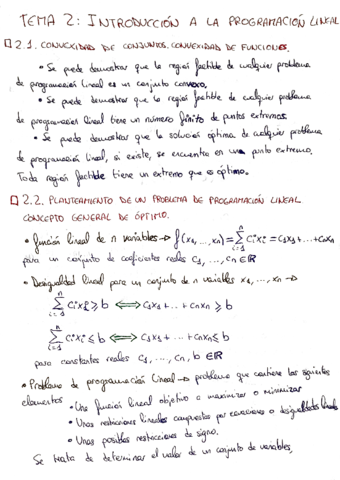 TEMA 2: INTRODUCCIÓN A LA PROGRAMACIÓN LINEAL
2.1. CONVEXIDAD DE CONJUNTOS. CONVEXIDAD DE FUNCIONES.
• Se puede demostrar que la región factible de cualquier problema
de programación lineal es un conjunto convexo.
• Se puede demostrar que la región factible de cualquier problema
de programación lineal tiene un número finito de puntos extremos.
• Se puede demostrar que la solución óptima de cualquier problema
de programación lineal, si existe, se encuentra en un punto extremo.
Toda región factible tiene un extremo que es óptimo.
2.2. PLANTEAMIENTO DE UN PROBLEMA DE PROGRAMACIÓN LINEAL
CONCEPTO GENERAL DE ÓPTIMO.
• función lineal de n variables → f(x₁, ..., xₙ) = Σᵢ₌₁ⁿ cᵢxᵢ = c₁x₁ + ... + cₙxₙ
para un conjunto de coeficientes reales c₁, ..., cₙ ∈ ℝ
• Desigualdad lineal para un conjunto de n variables x₁, ..., xₙ →
Σᵢ₌₁ⁿ cᵢxᵢ ≥ b ⟺ c₁x₁ + .. + cₙxₙ ≥ b
Σᵢ₌₁ⁿ cᵢxᵢ ≤ b ⟺ c₁x₁ + ... + cₙxₙ ≤ b
para constantes reales c₁, ..., cₙ, b ∈ ℝ
• Problema de programación lineal → problema que contiene los siguientes
elementos • Una función lineal objetivo a maximizar o minimizar
• Unas restricciones lineales compuestas por ecuaciones o desigualdades lineales
• Unas posibles restricciones de signo.
Se trata de determinar el valor de un conjunto de variables,